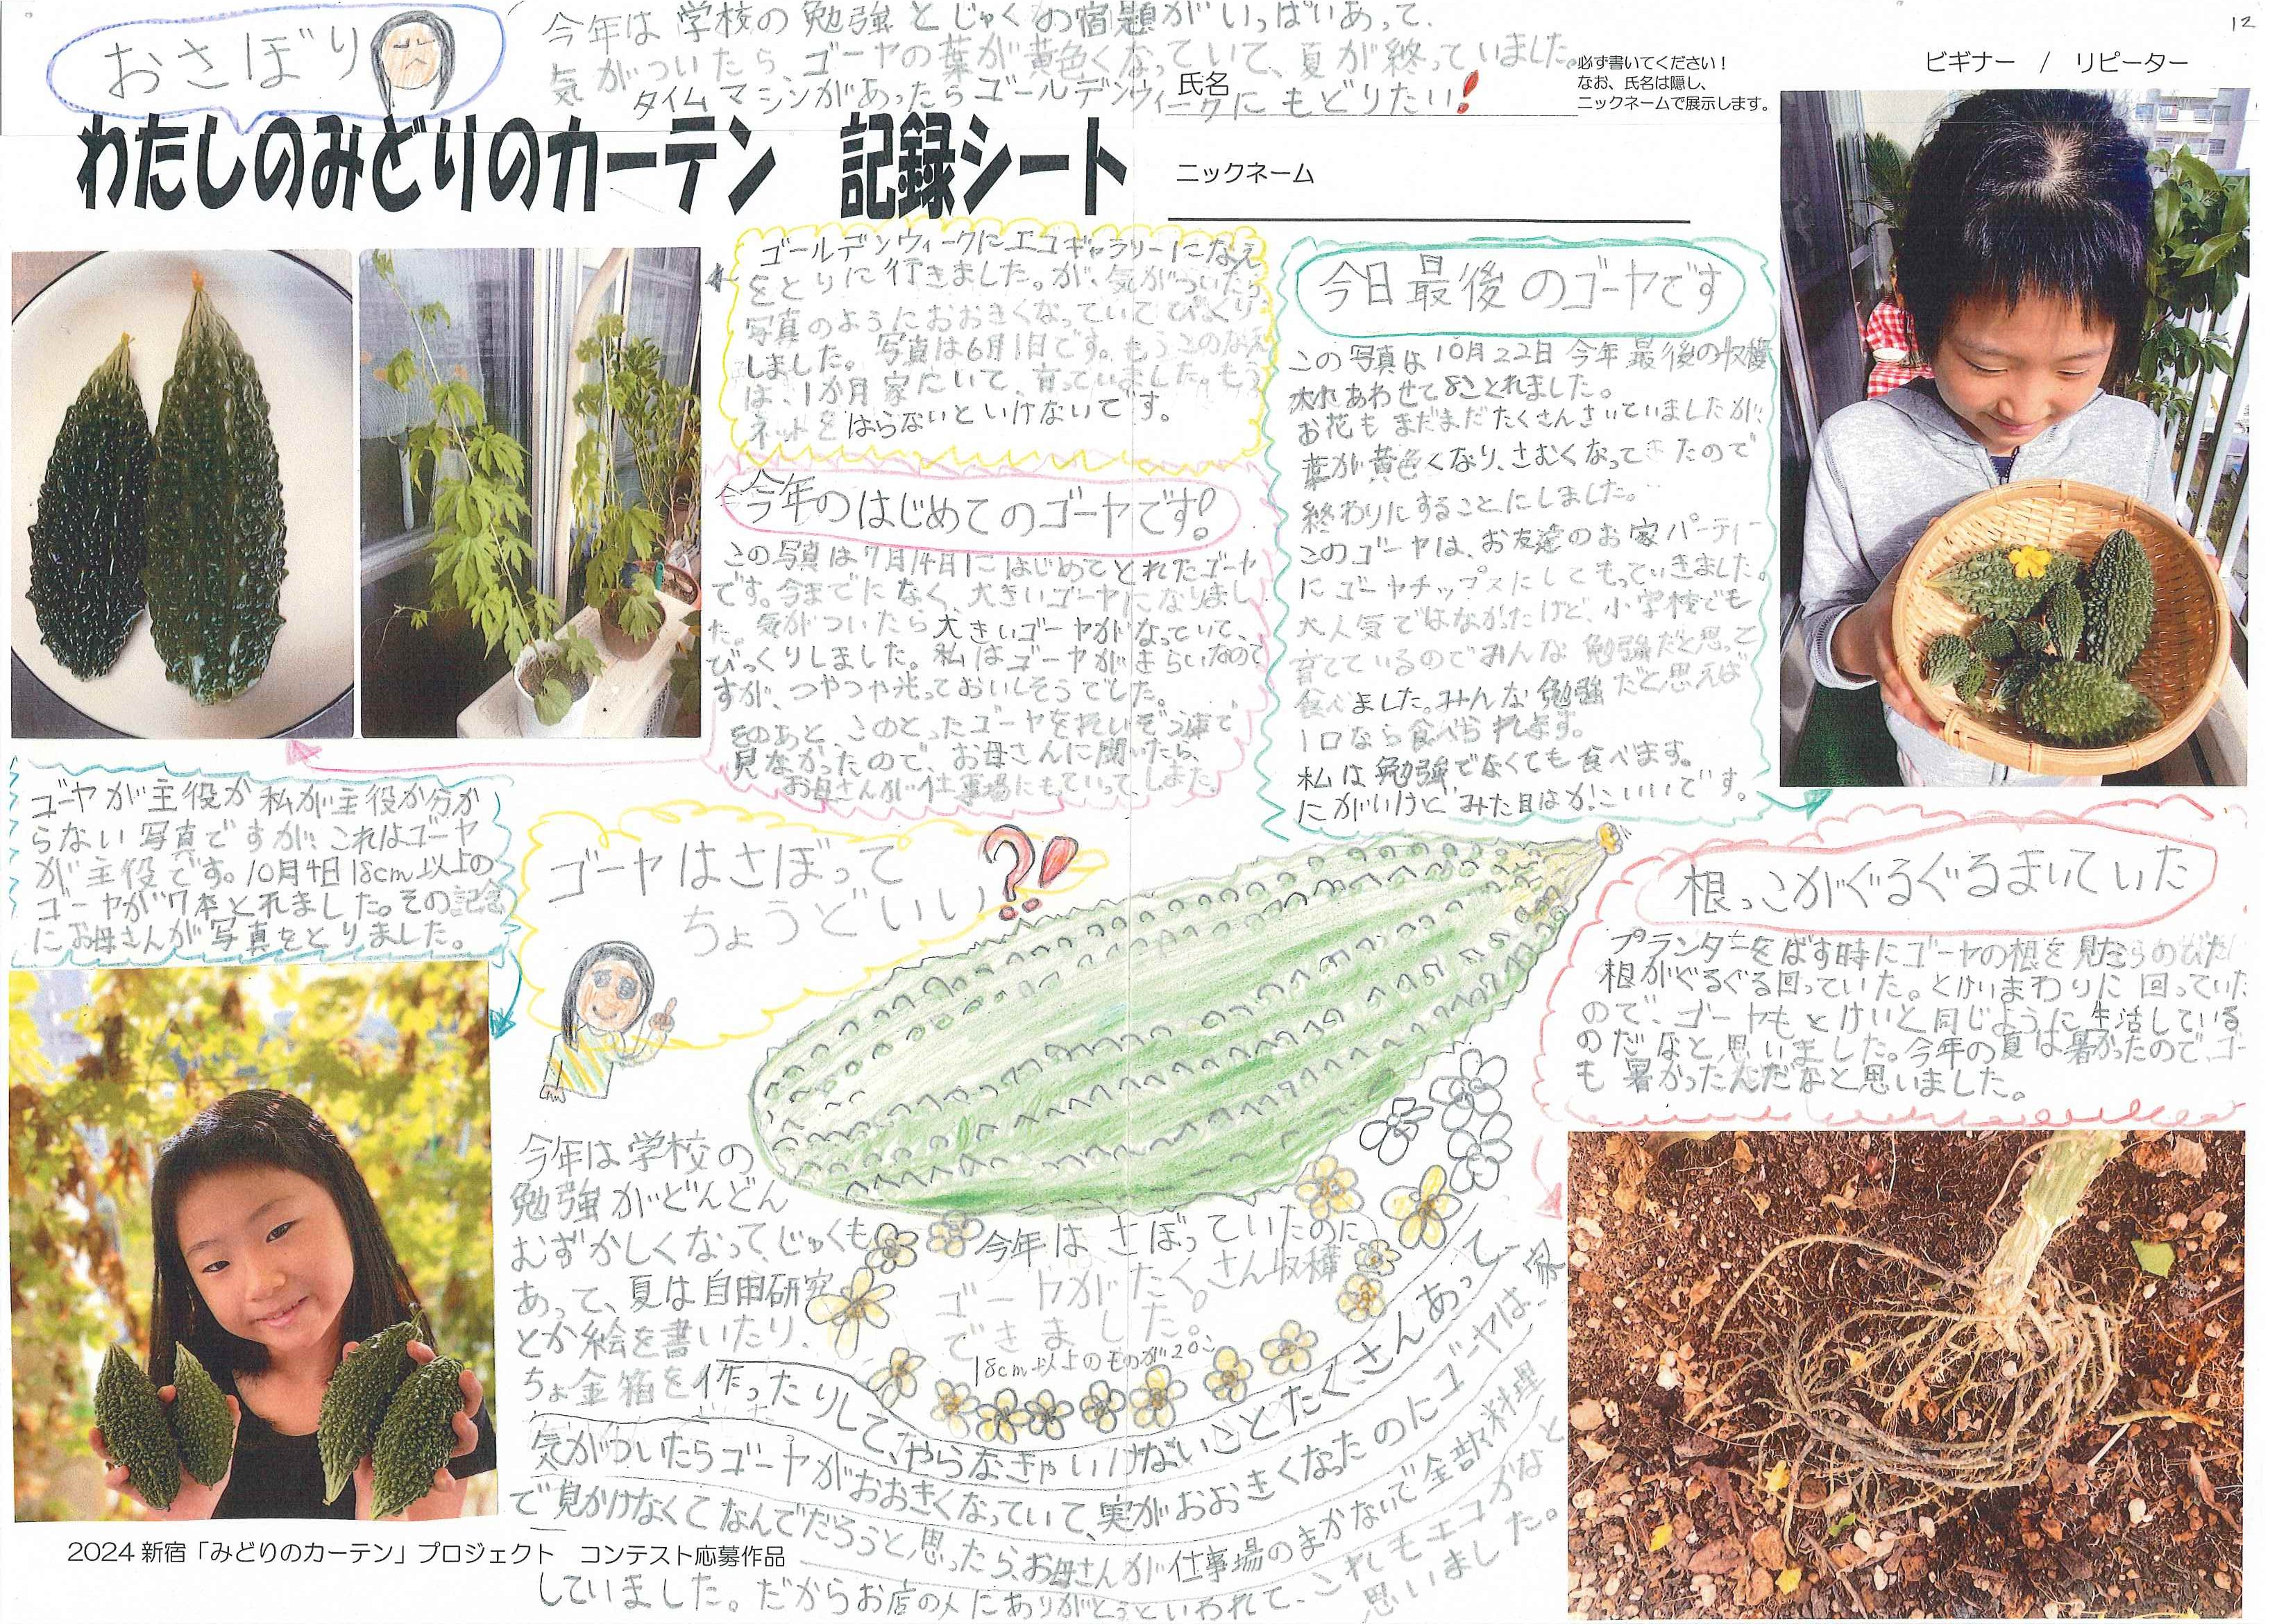 おさぼり
今年は学校の勉強とじゅくの宿題がいっぱいあって、
気がついたら、ゴーヤの葉が黄色くなっていて、夏が終っていました。
タイムマシンがあったらゴールデンウィークにもどりたい!
氏名
必ず書いてください!
なお、氏名は隠し、
ニックネームで展示します。
ビギナー / リピーター
12
わたしのみどりのカーテン 記録シート
ニックネーム
ゴールデンウィークにエコギャラリーになえ
をとりに行きました。が、気がついたら、
写真のようにおおきくなっていてびっくり
しました。写真は6月1日です。もうこのなえ
は、1か月家にいて、育っていました。もう
ネットをはらないといけないです。
今年のはじめてのゴーヤです!
この写真は7月14日にはじめてとれたゴーヤ
です。今までになく、大きいゴーヤになりまし
た。気がついたら大きいゴーヤがなっていて、
びっくりしました。私はゴーヤがきらいなので
すが、つやつや光っておいしそうでした。
そのあと、このとったゴーヤをれいぞう庫で
見なかったので、お母さんに聞いたら、
お母さんが仕事場にもっていってしまた。
今日最後のゴーヤです
この写真は10月22日今年最後の収穫
大小あわせて8ことれました。
お花もまだまだたくさんさいていましたが、
葉が黄色くなり、さむくなってきたので
終わりにすることにしました。
このゴーヤは、お友達のお家パーティー
にゴーヤチップスにしてもっていきました。
大人気ではなかたけど、小学校でも
育てているのでみんな勉強だと思って
食べました。みんな勉強だと思えば
1口なら食べられます。
私は勉強でなくても食べます。
にがいけどみた目はかっこいいです。
ゴーヤが主役か私が主役か分か
らない写真ですが、これはゴーヤ
が主役です。10月4日18cm以上の
ゴーヤが7本とれました。その記念
にお母さんが写真をとりました。
ゴーヤはさぼって
ちょうどいい?!
根っこがぐるぐるまいていた
プランターをばす時にゴーヤの根を見たらのびた
根がぐるぐる回っていた。とけいまわりに回っていた
ので、ゴーヤもとけいと同じように生活している
のだなと思いました。今年の夏は暑かったので、ゴー
も暑かったんだなと思いました。
今年は学校の
勉強がどんどん
むずかしくなって、じゅくも
あって、夏は自由研究
とか絵を書いたり、
ちょ金箱を作ったりして、やらなきゃいけないことたくさんあって、
気がついたらゴーヤがおおきくなっていて、実がおおきくなったのにゴーヤは、家
で見かけなくてなんでだろうと思ったら、お母さんが仕事場のまかないで全部料理
していました。だからお店の人にありがとうといわれて、これもエコかなと
思いました。
今年はさぼっていたのに
ゴーヤがたくさん収穫
できました。
18cm以上のものが20こ
2024 新宿「みどりのカーテン」プロジェクト コンテスト応募作品